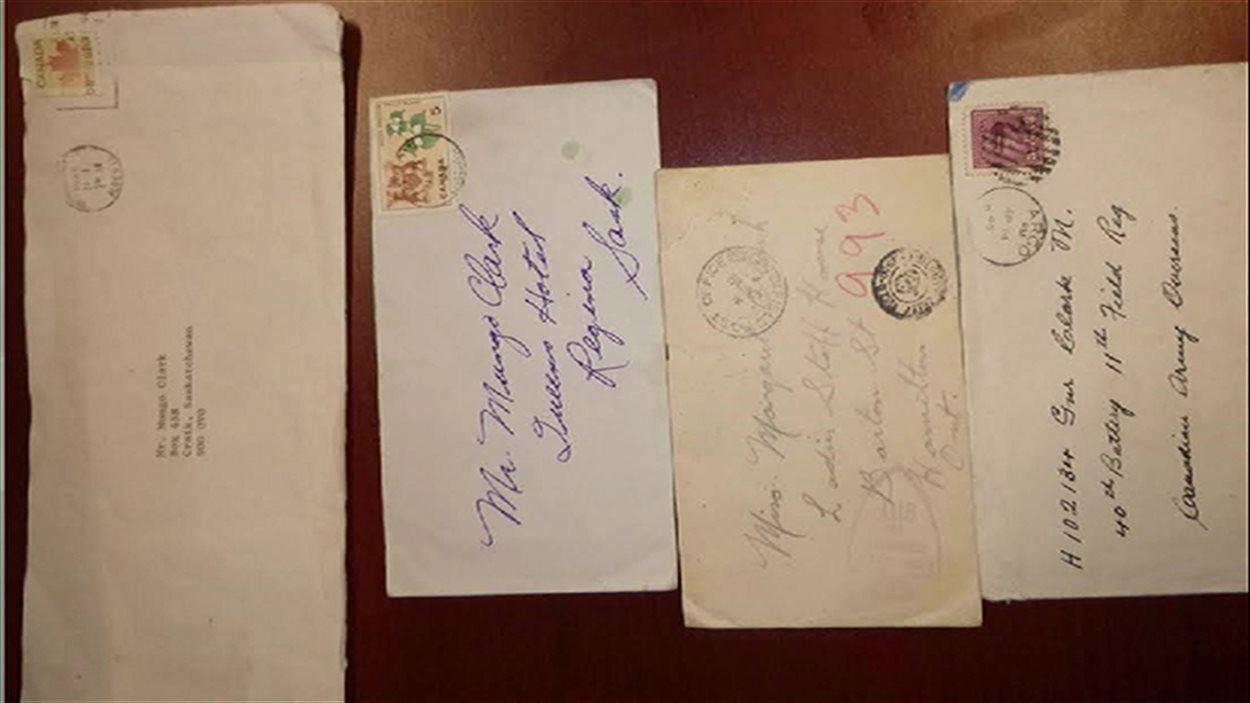 CANADA
Mr. Mungo Clark
Box 458
Craik, Saskatchewan
S0G 0V0
5
CANADA
Mr. Mungo Clark
Queens Hotel
Regina
Sask.
Miss. Margaret Clark
Ladies Staff House
Barton St
Hamilton
Ont.
993
H102184 Gnr Clark M.
40th Battery 11th Field Reg
Canadian Army Overseas.